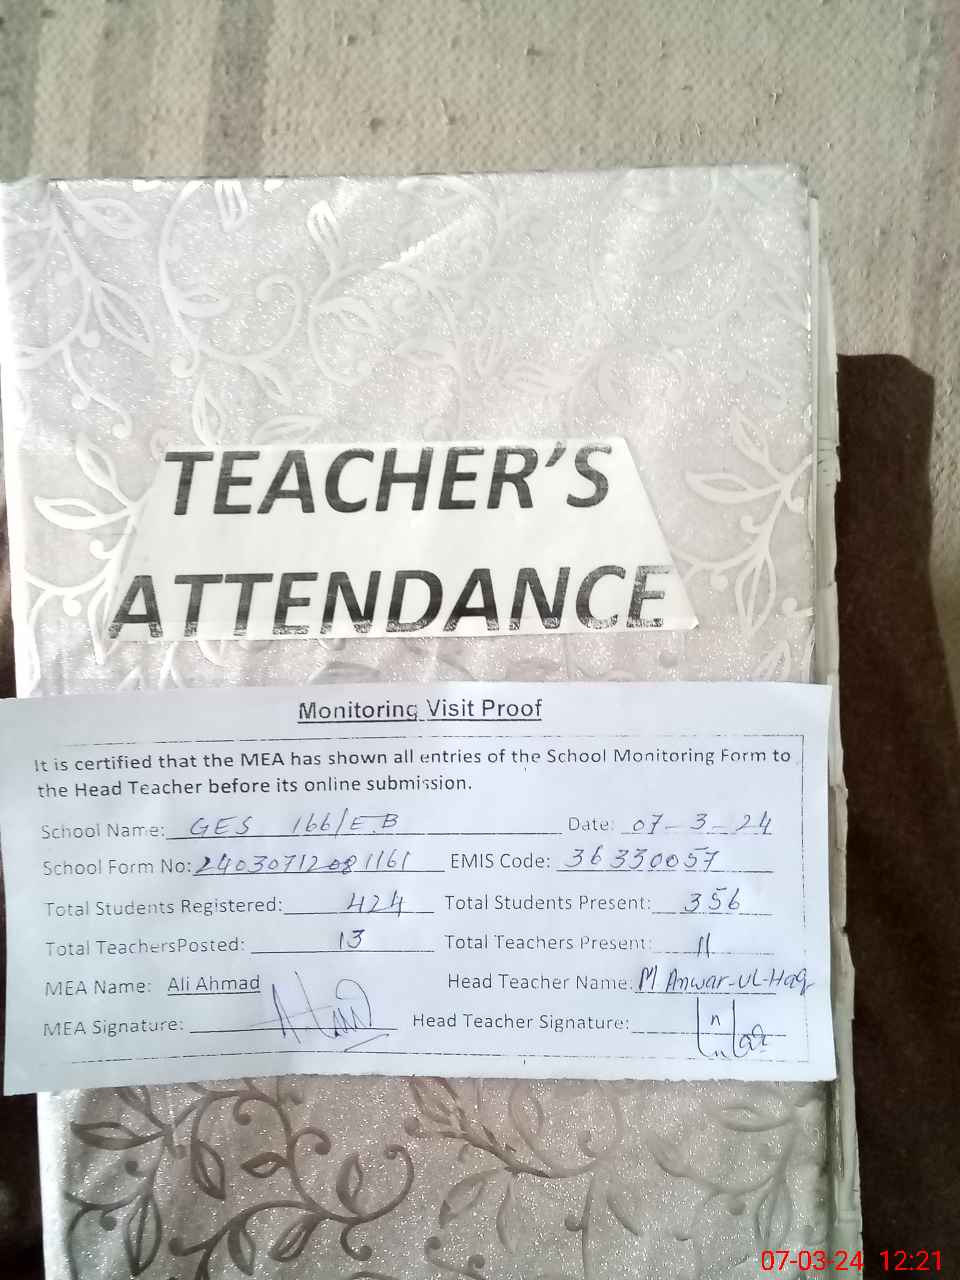 TEACHER'S
ATTENDANCE
Monitoring Visit Proof
It is certified that the MEA has shown all entries of the School Monitoring Form to
the Head Teacher before its online submission.
School Name: GES 166/E.B Date: 07-3-24
School Form No: 24030712081161 EMIS Code: 36330057
Total Students Registered: 424 Total Students Present: 356
Total TeachersPosted: 13 Total Teachers Present: 11
MEA Name: Ali Ahmad Head Teacher Name: M Anwar-ul-Haq
MEA Signature: Head Teacher Signature:
07-03-24 12:21